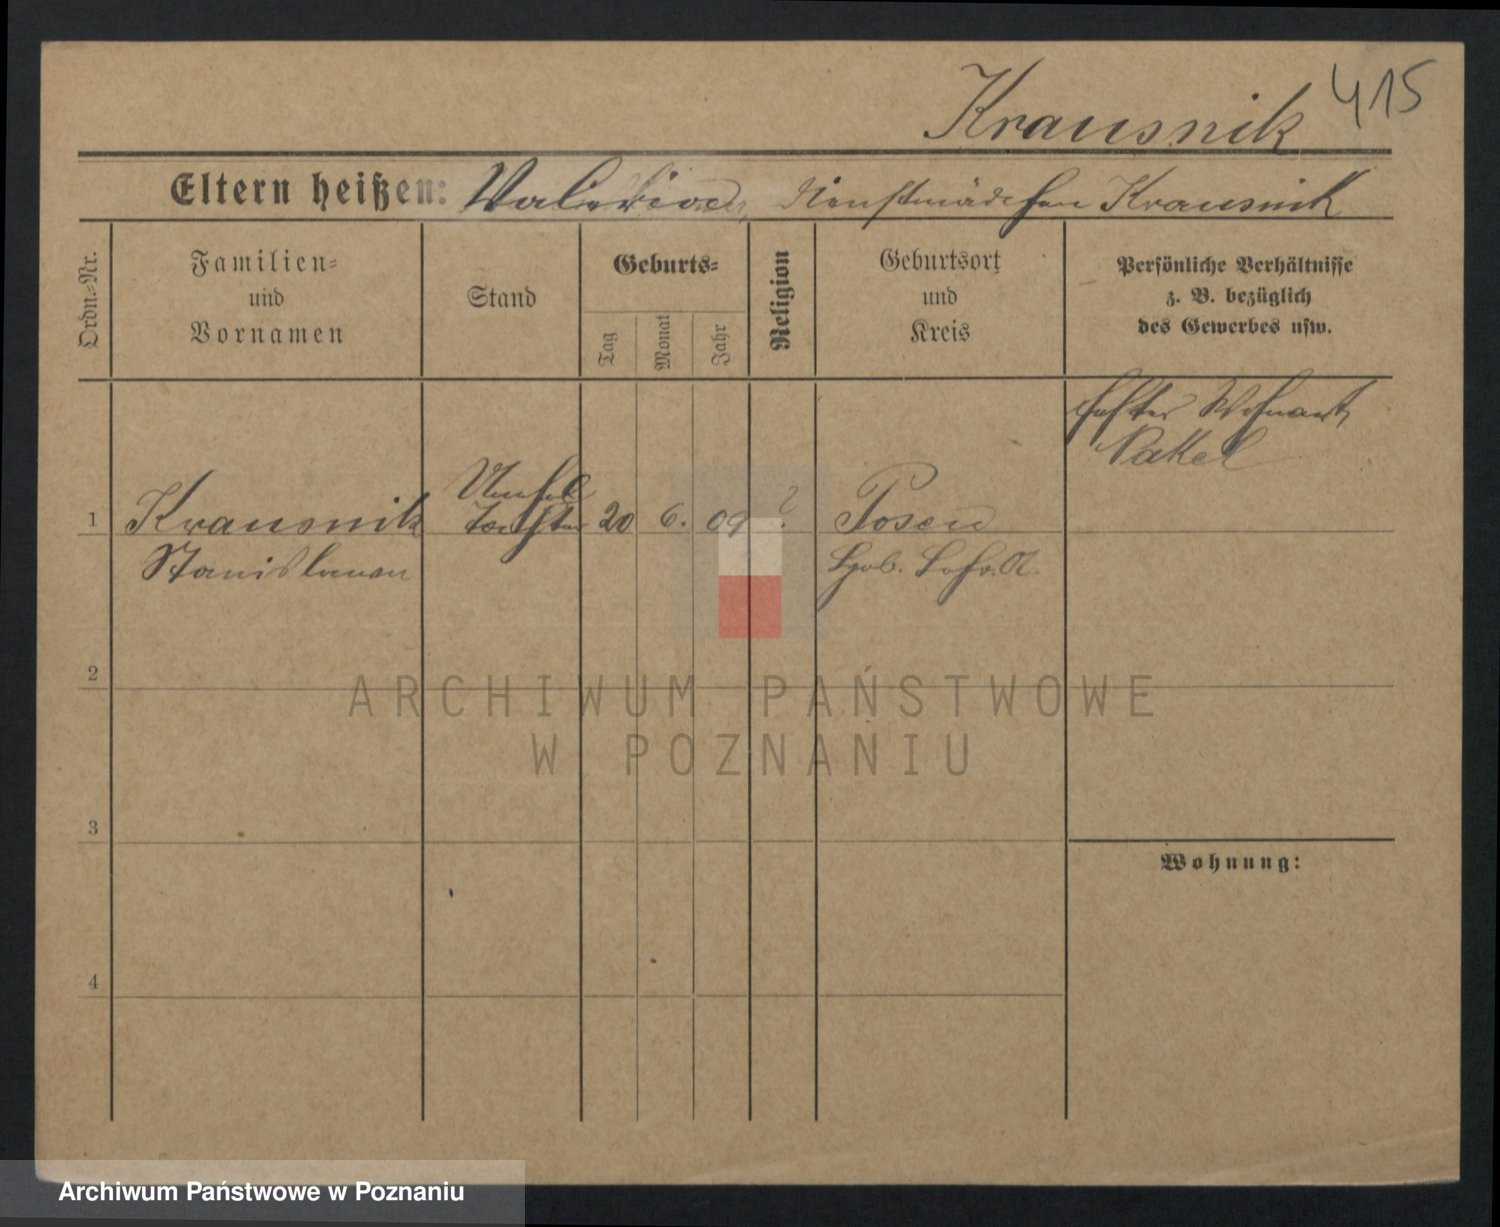 Krausnik 415
Eltern heißen: Dienstmädchen Krausnik
Ordn.-Nr.
Familien-
und
Vornamen
Stand
Geburts-
Tag
Monat
Jahr
Religion
Geburtsort
und
Kreis
Persönliche Verhältnisse
z. B. bezüglich
des Gewerbes usw.
Wohnort
1 Krausnik 20 6. 09 ? Posen
Stanislawa
2
3
4
Wohnung:
ARCHIWUM PAŃSTWOWE
W POZNANIU
Archiwum Państwowe w Poznaniu